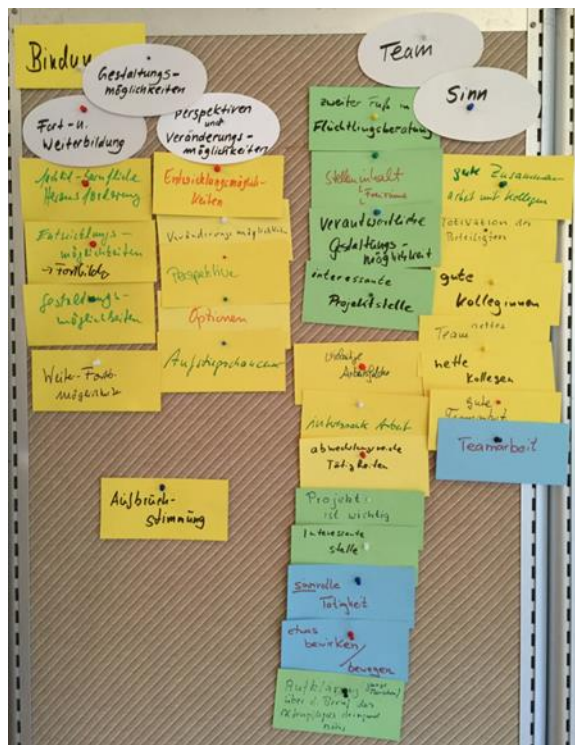 Bindun
Gestaltungs-
möglichkeiten
Fort- u.
Weiterbildung
Perspektiven
und
Veränderungs-
möglichkeiten
berufliche
Herausforderung
Entwicklungs-
möglichkeiten
→ Fortbildg
Gestaltungs-
möglichkeiten
Weiter-Fortb.
möglichkeiten
Entwicklungsmöglich-
keiten
Veränderungsmöglichk
Perspektive
Optionen
Aufstiegschancen
Aufbruch-
stimmung
Team
Sinn
zweiter Fuß in
Flüchtlingsberatung
Stelleninhalt
Freiräume
Verantwortliche
Gestaltungs-
möglichkeit
interessante
Projektstelle
vielseitige
Arbeitsfelder
interessante Arbeit
abwechslungsreiche
Tätigkeiten
Projekt
ist wichtig
Interessante
Stelle
sinnvolle
Tätigkeit
etwas
bewirken/
bewegen
Aufklärung
über d. Beruf des
gute Zusammen-
arbeit mit Kollegen
Motivation der
Beteiligten
gute
Kolleginnen
nettes
Team
nette
Kollegen
gute
Teamarbeit
Teamarbeit